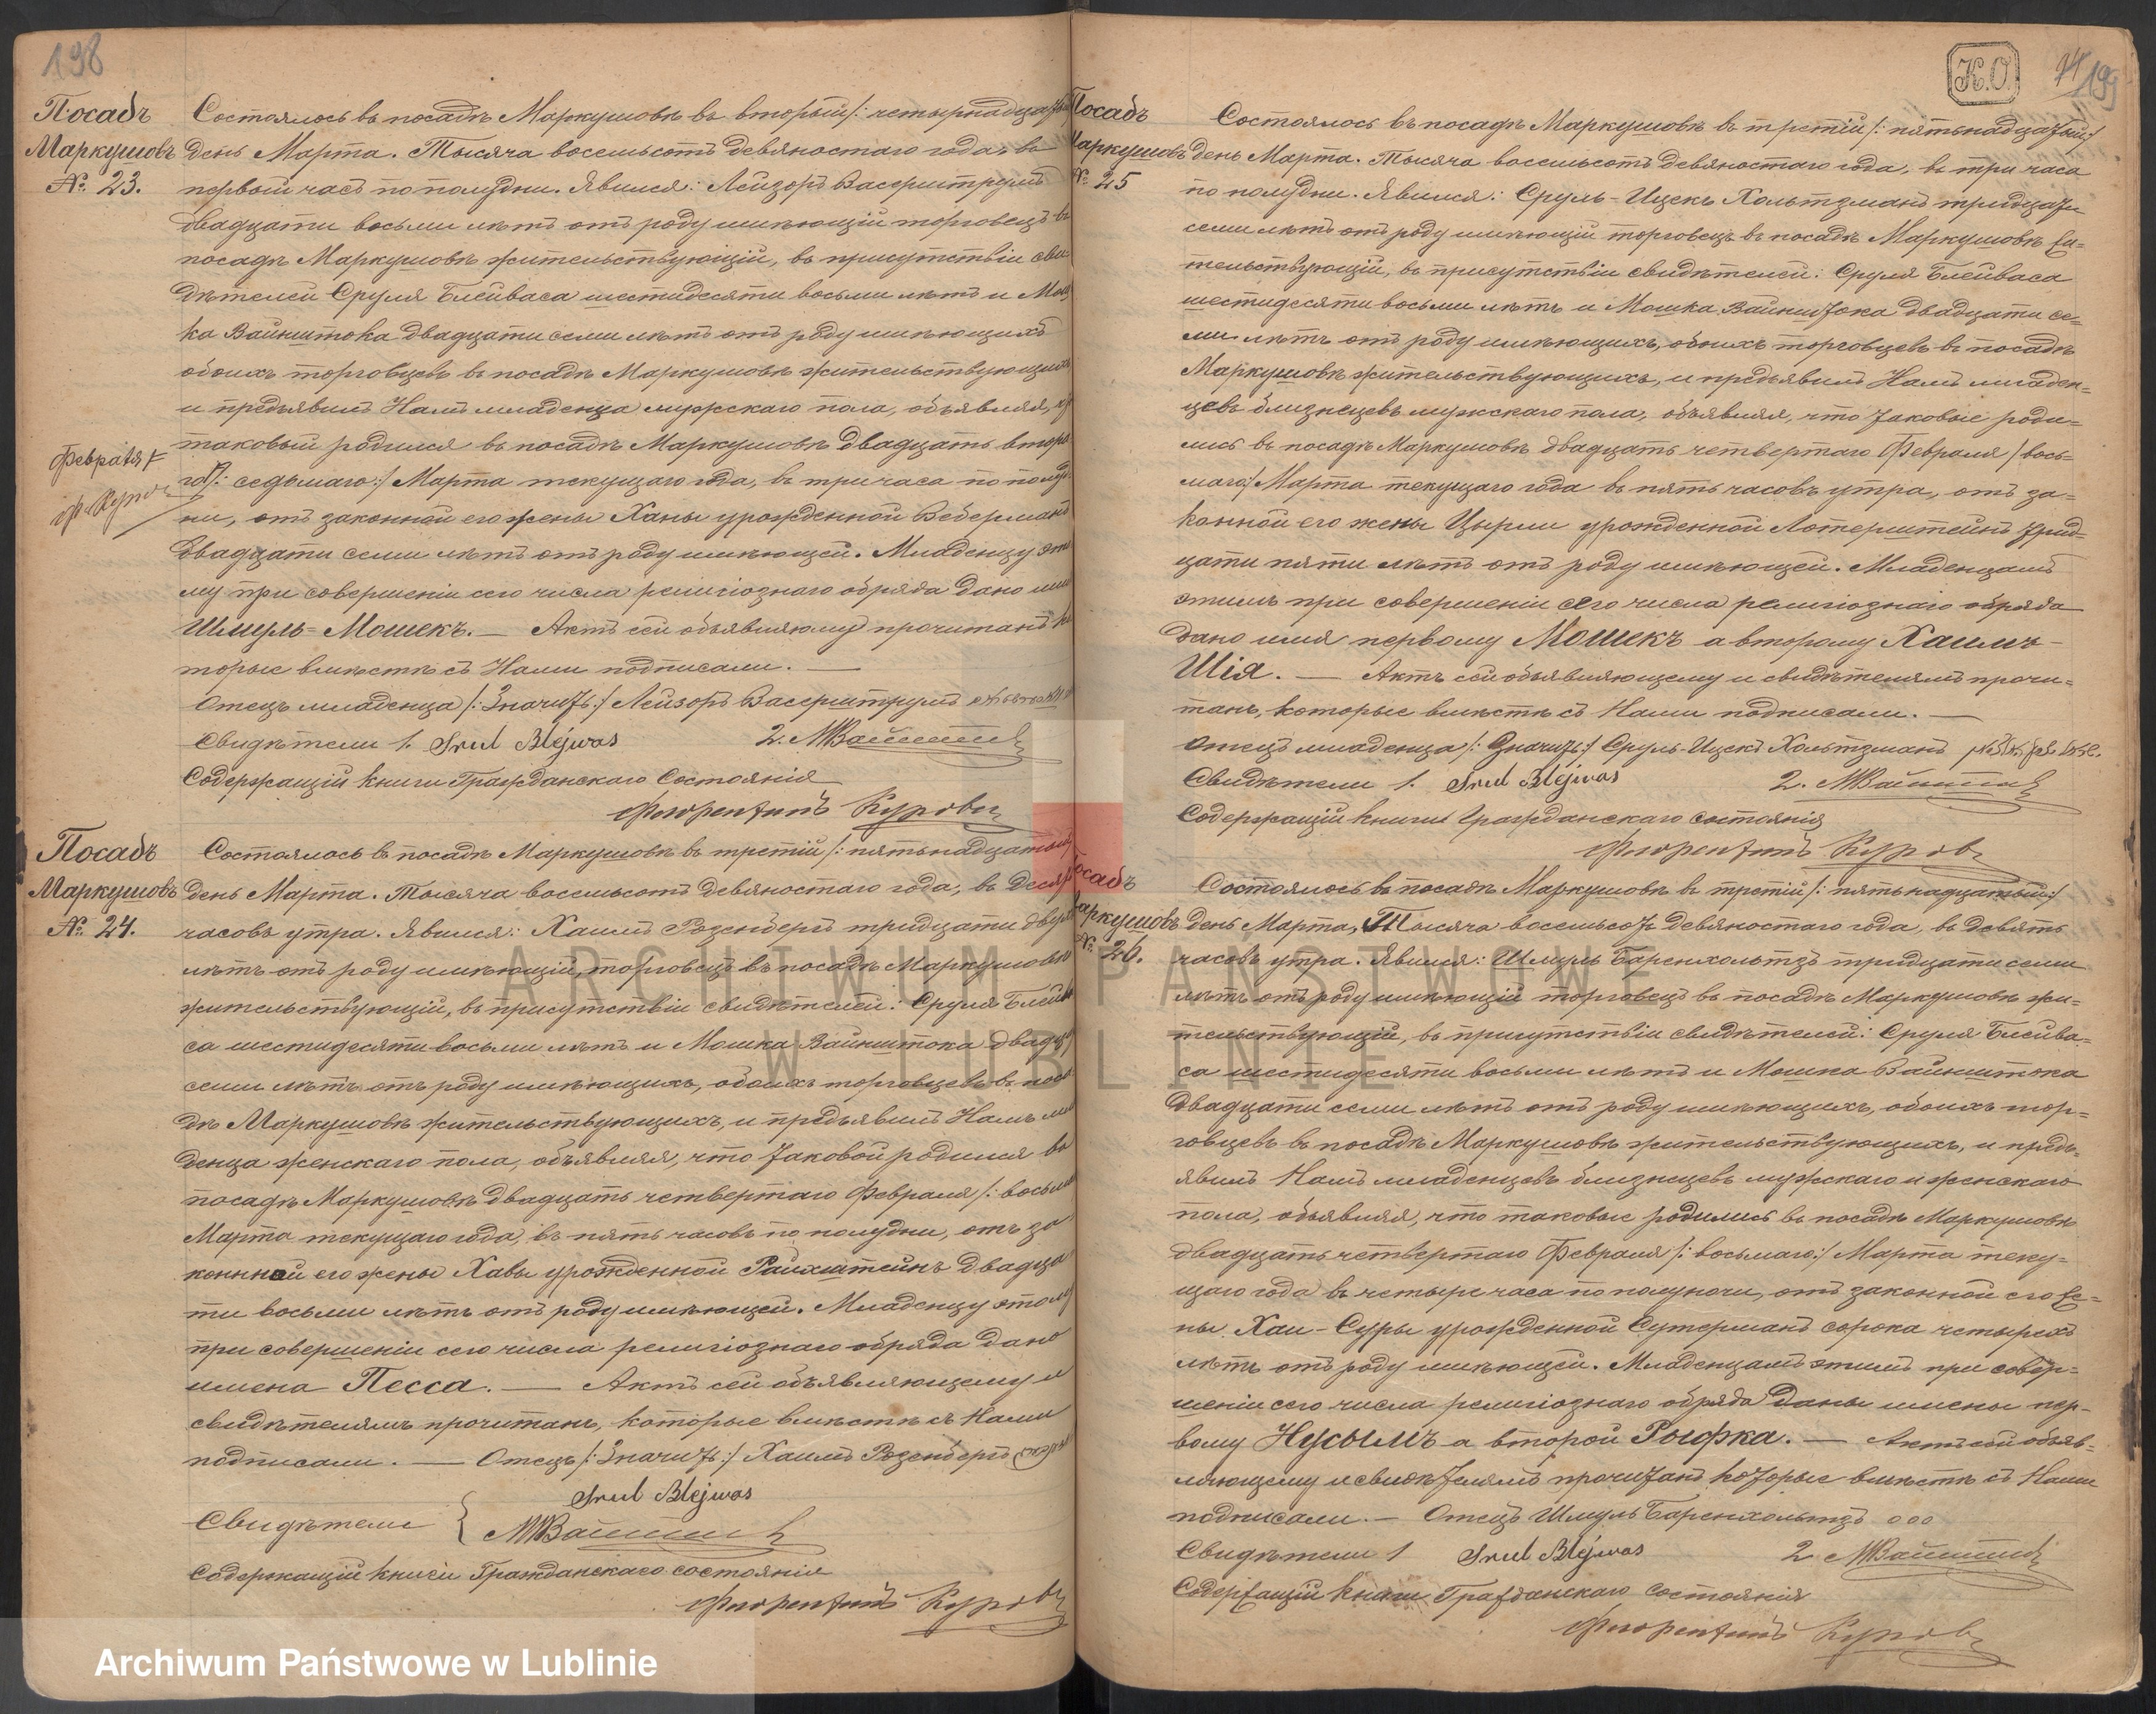 198
Посадъ
Маркушовъ
№ 23.
Состоялось въ посадѣ Маркушовѣ въ вторый /: четырнадцатый
день Марта. Тысяча восемьсотъ девяностаго года, въ
первый часъ по полудни. Явился: Лейзоръ Вассерштрумъ
двадцати восьми лѣтъ отъ роду имѣющій торговецъ въ
посадѣ Маркушовѣ жительствующій, въ присутствіи сви
дѣтелей Сруля Блейваса шестидесяти восьми лѣтъ и Мош
ка Вайнштока двадцати семи лѣтъ отъ роду имѣющихъ
обоихъ торговцевъ въ посадѣ Маркушовѣ жительствующихъ
и предъявилъ Намъ младенца мужскаго пола, объявляя,
таковый родился въ посадѣ Маркушовѣ двадцать втора
Февраля
го /: седьмаго :/ Марта текущаго года, въ три часа по полуд
ни, отъ законной его жены Ханы урожденной Веберманъ
двадцати семи лѣтъ отъ роду имѣющей. Младенцу это
му при совершеніи сего числа религіознаго обряда дано имя
Шмуль-Мошекъ. — Актъ сей объявляющему прочитанъ ко
торые вмѣстѣ съ Нами подписали. —
Отецъ младенца /: Значитъ :/ Лейзоръ Вассерштрумъ
Свидѣтели 1. Srul Blejwas 2. МВайншток
Содержащій книги Гражданскаго Состоянія
Флорентинъ Куров
Посадъ
Маркушовъ
№ 24.
Состоялось въ посадѣ Маркушовѣ въ третій /: пятьнадцатый
день Марта. Тысяча восемьсотъ девяностаго года, въ десять
часовъ утра. Явился: Хаимъ Розенбергъ тридцати двухъ
лѣтъ отъ роду имѣющій, торговецъ въ посадѣ Маркушовѣ
жительствующій, въ присутствіи свидѣтелей: Сруля Блейва
са шестидесяти восьми лѣтъ и Мошка Вайнштока двадца
семи лѣтъ отъ роду имѣющихъ, обоихъ торговцевъ въ поса
дѣ Маркушовѣ жительствующихъ, и предъявилъ Намъ мла
денца женскаго пола, объявляя, что таковой родился въ
посадѣ Маркушовѣ двадцать четвертаго Февраля /: восьма
Марта текущаго года, въ пять часовъ по полудни, отъ за
конной его жены Хавы урожденной Райхштейнъ двадца
ти восьми лѣтъ отъ роду имѣющей. Младенцу этому
при совершеніи сего числа религіознаго обряда дано
имена Песса. — Актъ сей объявляющему и
свидѣтелямъ прочитанъ, которые вмѣстѣ съ Нами
подписали. — Отецъ /: Значитъ :/ Хаимъ Розенбергъ
Свидѣтели { Srul Blejwas
МВайншток
Содержащій книги Гражданскаго состоянія
Флорентинъ Куров
К.О.
74
199
Посадъ
Маркушовъ
№ 25
Состоялось въ посадѣ Маркушовѣ въ третій /: пятьнадцатый :/
день Марта. Тысяча восемьсотъ девяностаго года, въ три часа
по полудни. Явился: Сруль-Ицекъ Хольтзманъ тридцати
семи лѣтъ отъ роду имѣющій торговецъ въ посадѣ Маркушовѣ жи-
тельствующій, въ присутствіи свидѣтелей: Сруля Блейваса
шестидесяти восьми лѣтъ и Мошка Вайнштока двадцати се-
ми лѣтъ отъ роду имѣющихъ, обоихъ торговцевъ въ посадѣ
Маркушовѣ жительствующихъ, и предъявилъ Намъ младен-
цевъ близнецевъ мужскаго пола, объявляя, что таковые роди-
лись въ посадѣ Маркушовѣ двадцать четвертаго Февраля /: вось-
маго :/ Марта текущаго года въ пять часовъ утра, отъ за-
конной его жены Цырли урожденной Лотерштейнъ трид-
цати пяти лѣтъ отъ роду имѣющей. Младенцамъ
этимъ при совершеніи сего числа религіознаго обряда
дано имя первому Мошекъ а второму Хаимъ-
Шія. — Актъ сей объявляющему и свидѣтелямъ прочи-
танъ, которые вмѣстѣ съ Нами подписали. —
Отецъ младенца /: Значитъ :/ Сруль-Ицекъ Хольтзманъ
Свидѣтели 1. Srul Blejwas 2. МВайншток
Содержащій книги Гражданскаго состоянія
Флорентинъ Куров
Посадъ
Маркушовъ
№ 26.
Состоялось въ посадѣ Маркушовѣ въ третій /: пятьнадцатый :/
день Марта, Тысяча восемьсотъ девяностаго года, въ девять
часовъ утра. Явился: Шмуль Баренхольтзъ тридцати семи
лѣтъ отъ роду имѣющій торговецъ въ посадѣ Маркушовѣ жи-
тельствующій, въ присутствіи свидѣтелей: Сруля Блейва-
са шестидесяти восьми лѣтъ и Мошка Вайнштока
двадцати семи лѣтъ отъ роду имѣющихъ, обоихъ тор-
говцевъ въ посадѣ Маркушовѣ жительствующихъ, и предъ-
явилъ Намъ младенцевъ близнецевъ мужскаго и женскаго
пола, объявляя, что таковые родились въ посадѣ Маркушовѣ
двадцать четвертаго Февраля /: восьмаго :/ Марта теку-
щаго года въ четыре часа по полуночи, отъ законной его же-
ны Хаи-Суры урожденной Сутерманъ сорока четырехъ
лѣтъ отъ роду имѣющей. Младенцамъ этимъ при совер-
шеніи сего числа религіознаго обряда даны имены пер-
вому Нусымъ а второй Рыфка. — Актъ сей объяв-
ляющему и свидѣтелямъ прочитанъ которые вмѣстѣ съ Нами
подписали. — Отецъ Шмуль Баренхольтзъ ооо
Свидѣтели 1 Srul Blejwas 2 МВайншток
Содержащій книги Гражданскаго Состоянія
Флорентинъ Куров
ARCHIWUM PAŃSTWOWE
W LUBLINIE
Archiwum Państwowe w Lublinie